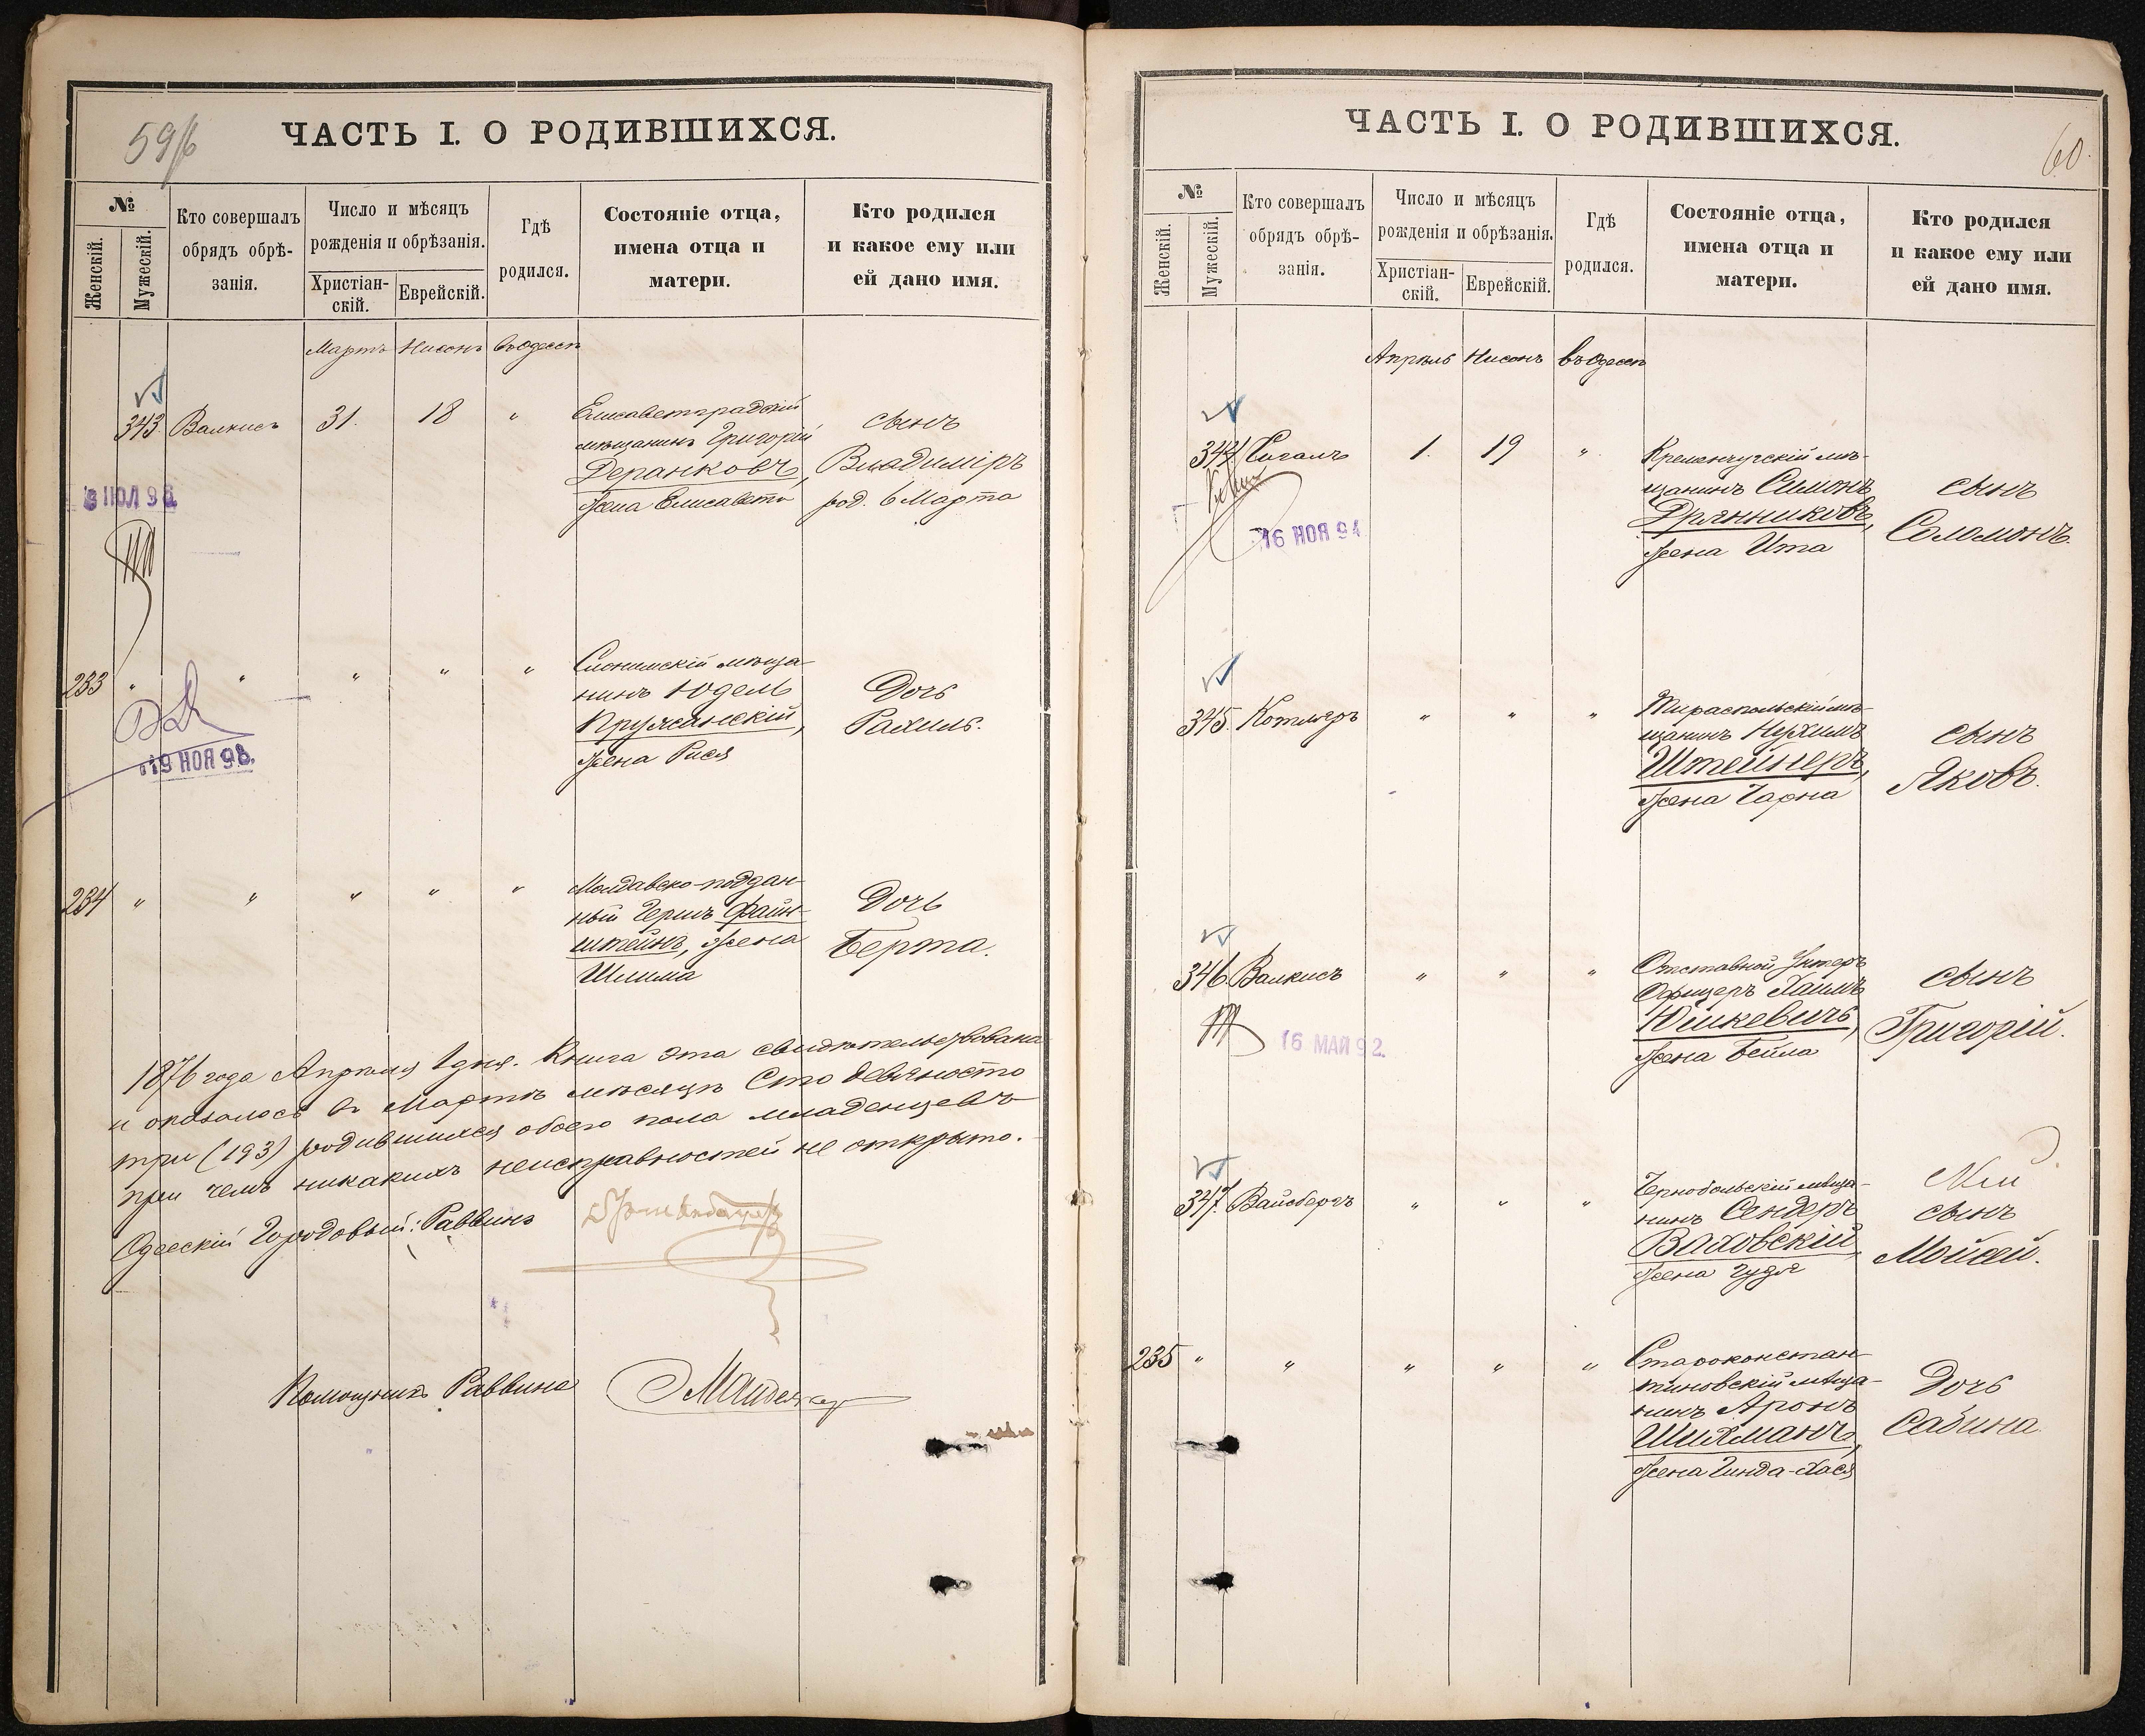 59/б
ЧАСТЬ I. О РОДИВШИХСЯ.
№
Женскій.
Мужескій.
Кто совершалъ
обрядъ обрѣ-
занія.
Число и мѣсяцъ
рожденія и обрѣзанія.
Христіан-
скій.
Еврейскій.
Гдѣ
родился.
Состояніе отца,
имена отца и
матери.
Кто родился
и какое ему или
ей дано имя.
Мартъ Нисонъ въ Одессѣ
343. Валкисъ 31. 18 "
Елисаветградскій
мѣщанинъ Григорій
Деранковъ,
жена Елисавета
сынъ
Владиміръ
род. 6 Марта
233 " " " " "
Слонимскій мѣща-
нинъ Юдель
Пружанскій,
жена Рися
Дочь
Рахиль.
19 НОЯ 98.
234 " " " " "
Молдавско-поддан-
ный Гершъ Файн-
штейнъ, жена
Шлима
Дочь
Берта.
1876 года Апрѣля 1 дня. Книга эта свидѣтельствована
и оказалось въ Мартѣ мѣсяцѣ Сто девяносто
три (193) родившихся обоего пола младенцевъ
при чемъ никакихъ неисправностей не открыто.
Одесскій Городовый Раввинъ
Помощникъ Раввина
60.
ЧАСТЬ I. О РОДИВШИХСЯ.
№
Женскій.
Мужескій.
Кто совершалъ
обрядъ обрѣ-
занія.
Число и мѣсяцъ
рожденія и обрѣзанія.
Христіан-
скій.
Еврейскій.
Гдѣ
родился.
Состояніе отца,
имена отца и
матери.
Кто родился
и какое ему или
ей дано имя.
Апрѣль Нисонъ въ Одессѣ
344 Сигалъ 1. 19 "
Кременчугскій мѣ-
щанинъ Симонъ
Дрянниковъ,
жена Ита
сынъ
Соломонъ.
16 НОЯ 94
345. Котляръ " " "
Тираспольскій мѣ-
щанинъ Нухимъ
Штейнеръ,
жена Чарна
сынъ
Яковъ.
346. Валкисъ " " "
Отставной Унтеръ
Офицеръ Хаимъ
Юшкевичъ,
жена Бейла
сынъ
Григорій.
16 МАЙ 92.
347. Вайсбергъ " " "
Чернобыльскій мѣща-
нинъ Сендеръ
Ваховскій
жена Гудя
сынъ
Мойсей.
235 " " " " "
Староконстан-
тиновскій мѣща-
нинъ Аронъ
Шихманъ,
жена Гинда-Хася
Дочь
Сабина